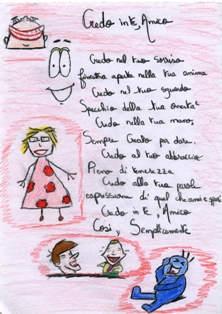 Credo in te, Amico
Credo nel tuo sorriso
finestra aperta nella tua anima
Credo nel tuo sguardo
Specchio della tua onestà
Credo nella tua mano,
Sempre tesa per dare,
Credo al tuo abbraccio
Pieno di tenerezza
Credo alla tua parola
espressione di quel che ami e speri
Credo in te, Amico
Così, Semplicemente